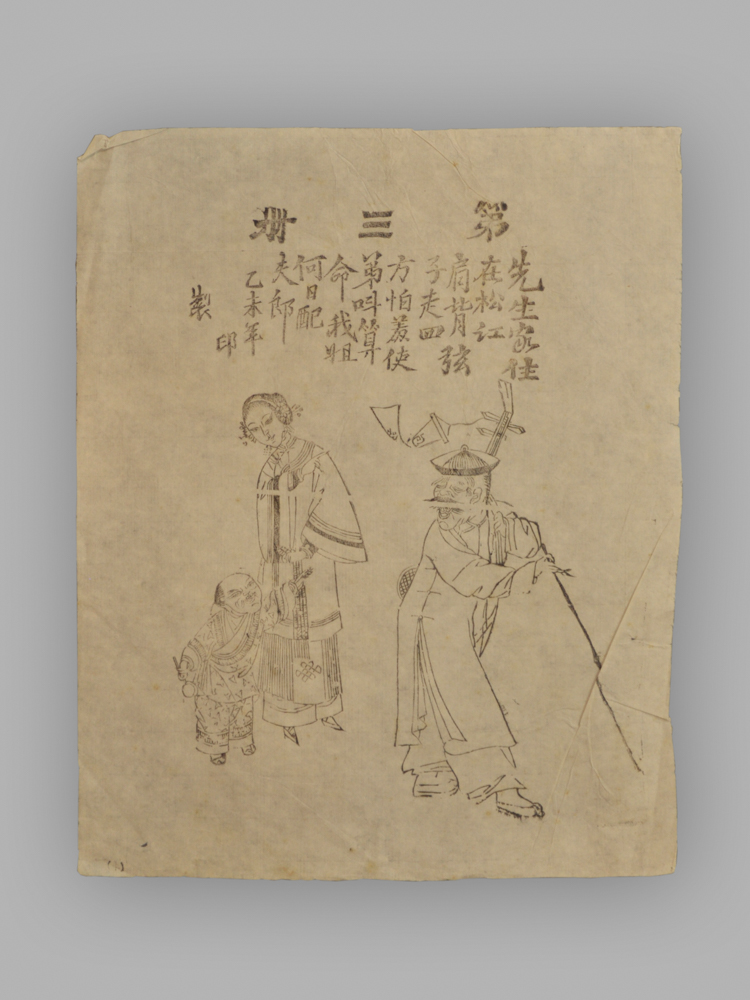 第三冊
先生家住
在松江
肩背弦
子走四
方怕羞使
弟呌算
命我姐
何日配
夫郎
乙未年
印
製